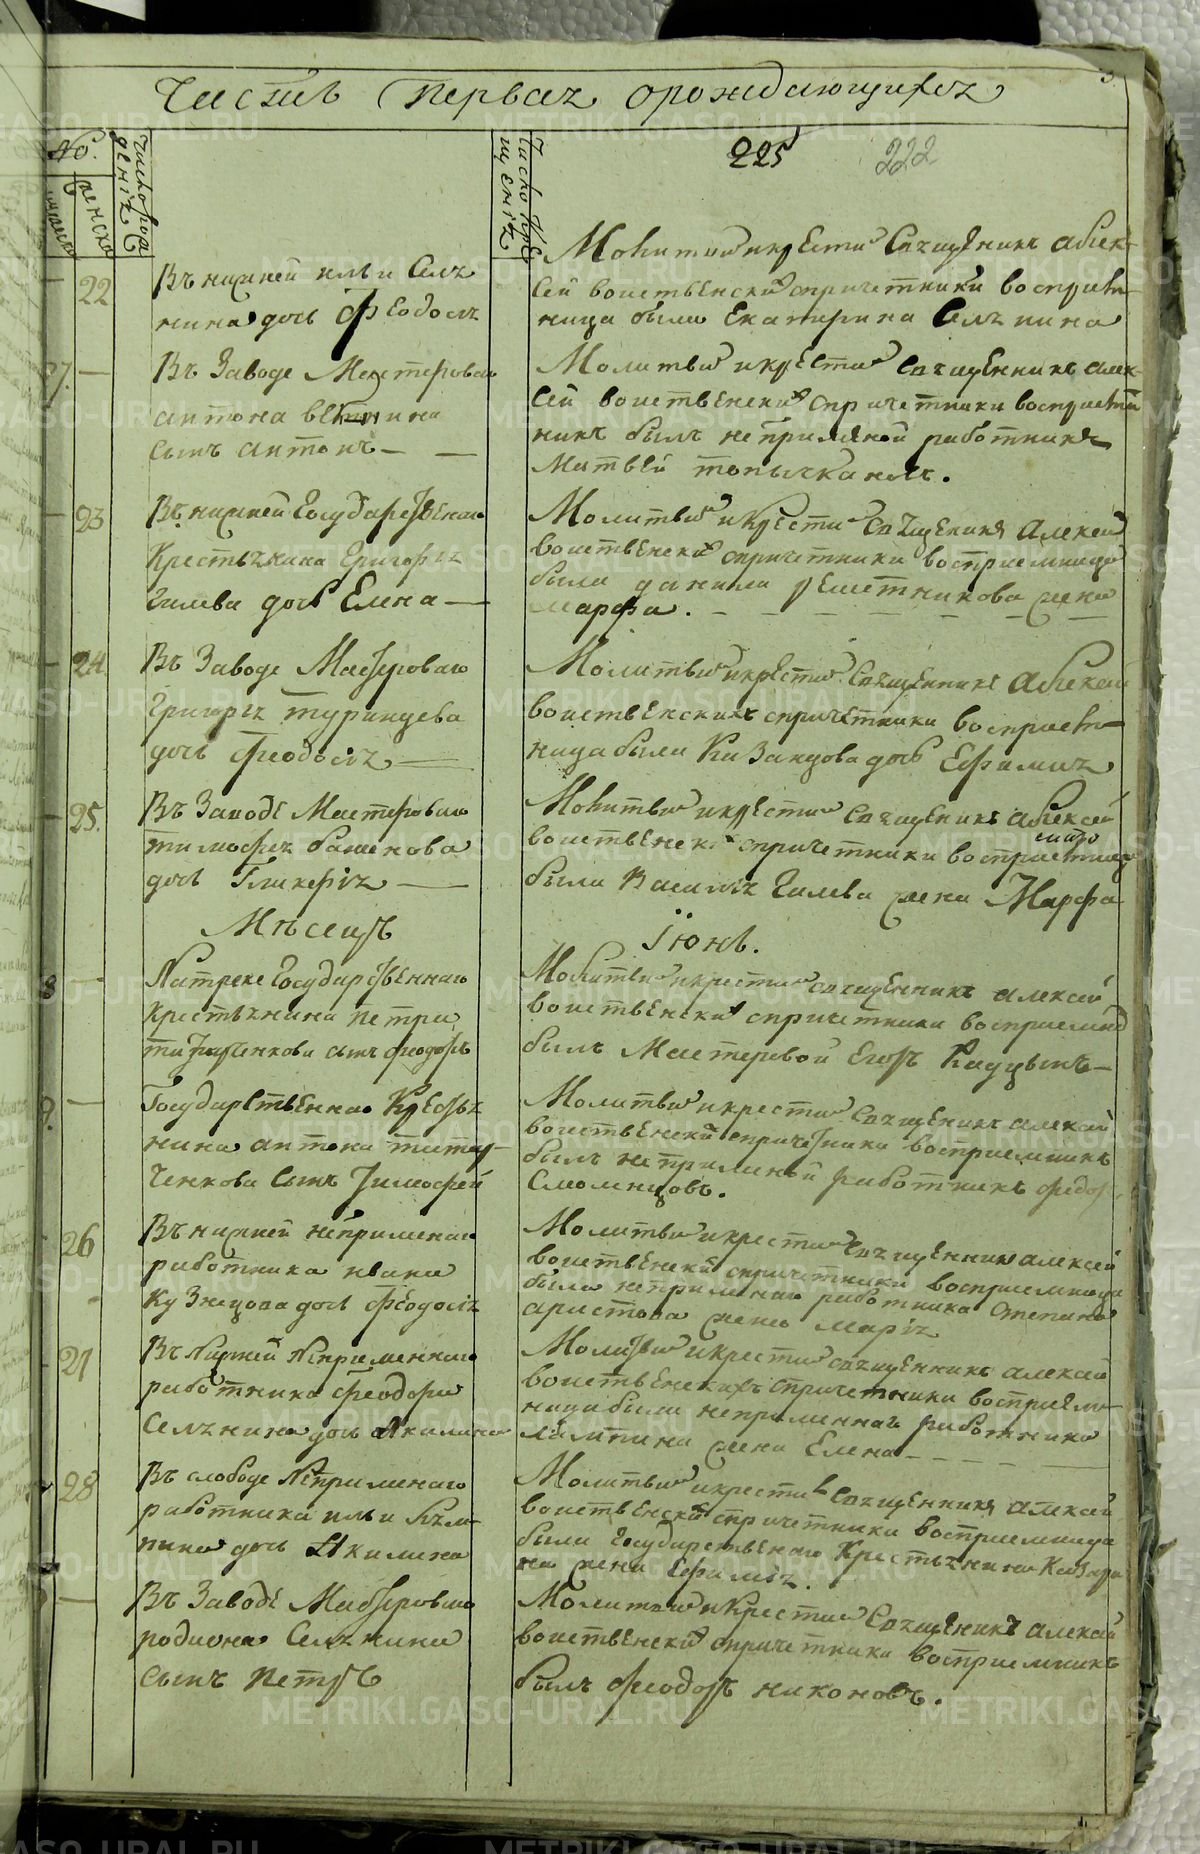 Часть первая ораждающихся
225 222
№.
мужеска
женска
число рождения
число крещения
22
Въ нижней ильи Селя
нина дочь Феодося
Молитвил и крести Священникъ Алек
сей воинственски спричетники восприем
ница была Екатерина Селянина
27.
Въ Заводе Мастероваго
антона
сынъ антонъ
Молитвил и крести Священникъ алек
сей воинственский спричетники восприем
никъ былъ непремѣной работникъ
Матвѣй топычкановъ.
23
Въ нижней Государственаго
Крестьянина Григорья
Гилева дочь Елена
Молитвил и крести Священикъ Алексей
воинственский спричетники восприемница
была данилы решетникова жена
марфа.
24
Въ Заводе Мастероваго
Григорья туринцева
дочь Феодосья
Молитвил и крести Священникъ Алексей
воинственскихъ спричетники восприем
ница была Казанцова дочь Ефимья
25.
Въ Заводе Мастероваго
тимофея баженова
дочь Гликерія
Молитвил и крести Священикъ Алексей
воинственски спричетники восприемница
была Василья Гилева жена Марфа
Мѣсецъ
Іюнь.
8
Патреке Государственнаго
крестьянина петра
сынъ феодоръ
Молитвил и крести священникъ алексей
воинственский спричетники восприемник
былъ Мастеровой Егоръ Кадцынъ
9.
Государственнаго Кресья
нина антона титар
ченкова сынъ Тимофей
Молитвил и крести Священикъ алексей
воинственский спричетники восприемникъ
былъ непременый работникъ федоръ
Смоленцовъ.
26
Въ нижней непременаго
работника ивана
Кузнецова дочь феодосья
Молитвил и крести Священникъ алексей
воинственски спричетники восприемница
была непременаго работника степана
аристова жена марія
27
Въ Нижней Непременнаго
работника Феодора
Селянина дочь Акилина
Молитвил и крести священникъ алексей
воинственскихъ спричетники восприем
ница была непременнаго работника
жена Елена
28
Въ слободе Непременаго
работника ильи
дочь Акилина
Молитвил и крести Священникъ алексей
воинственски спричетники восприемница
была Государственаго Крестьянина Казари
на жена Ефимья.
Въ Заводе Мастероваго
родиона Селянина
сынъ петръ
Молитвил и крести Священикъ алексей
воинственский спричетники восприемникъ
былъ феодоръ никоновъ.
METRIKI.GASO-URAL.RU